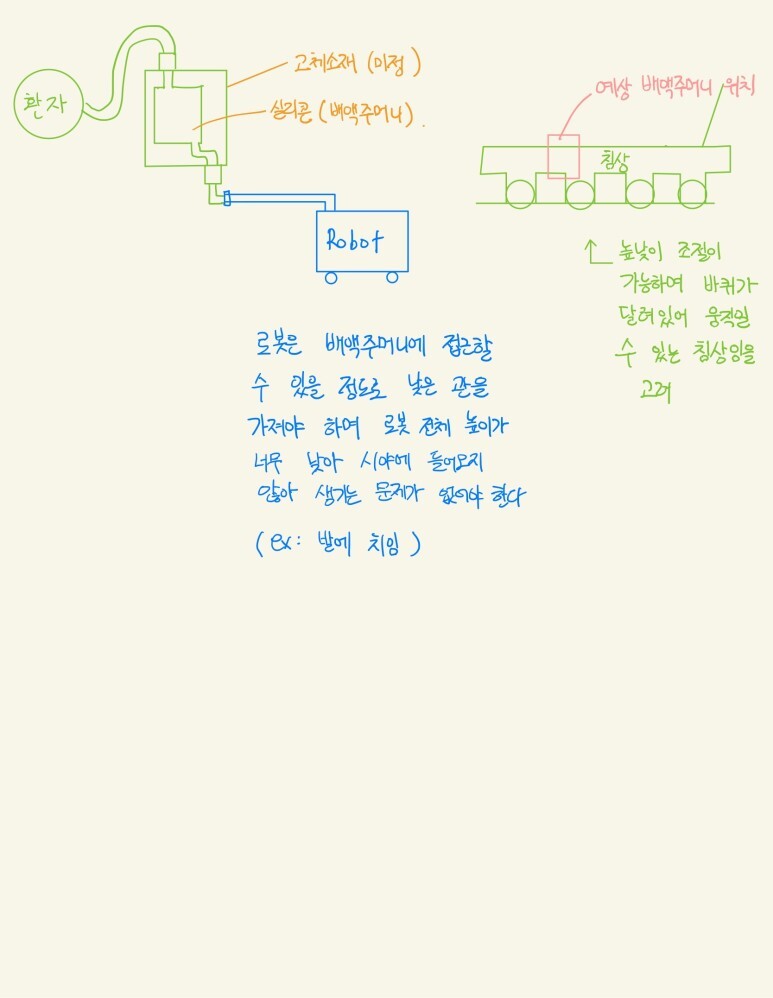 환자
고체소재 (미정)
실리콘 (배액주머니).
Robot
예상 배액주머니 위치
침상
높낮이 조절이
가능하며 바퀴가
달려있어 움직일
수 있는 침상임을
고려
로봇은 배액주머니에 접근할
수 있을 정도로 낮은 관을
가져야 하며 로봇 전체 높이가
너무 낮아 시야에 들어오지
않아 생기는 문제가 없어야 한다
(ex: 발에 치임)